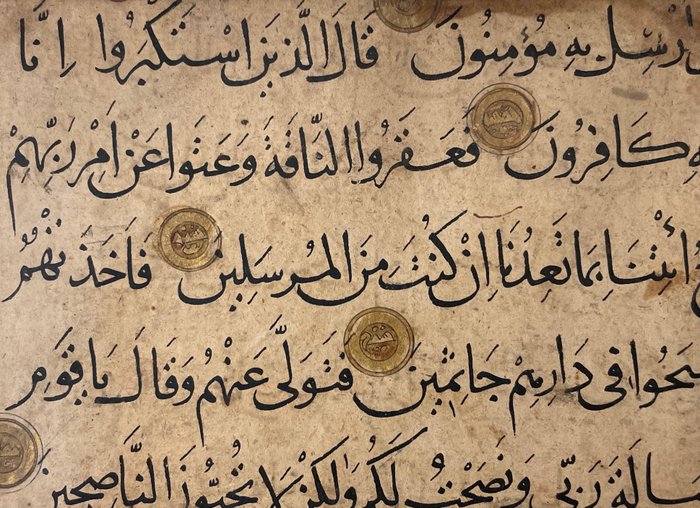 أُرْسِلَ بِهِ مُؤْمِنُونَ قَالَ الَّذِينَ اسْتَكْبَرُوا اِنَّا
كَافِرُونَ فَعَقَرُوا النَّاقَةَ وَعَتَوْا عَنْ اَمْرِ رَبِّهِمْ
ائْتِنَا بِمَا تَعِدُنَا اِنْ كُنْتَ مِنَ الْمُرْسَلِينَ فَاَخَذَتْهُمُ
فِي دَارِهِمْ جَاثِمِينَ فَتَوَلَّى عَنْهُمْ وَقَالَ يَا قَوْمِ
رَبِّي وَنَصَحْتُ لَكُمْ وَلَكِنْ لَا تُحِبُّونَ النَّاصِحِينَ